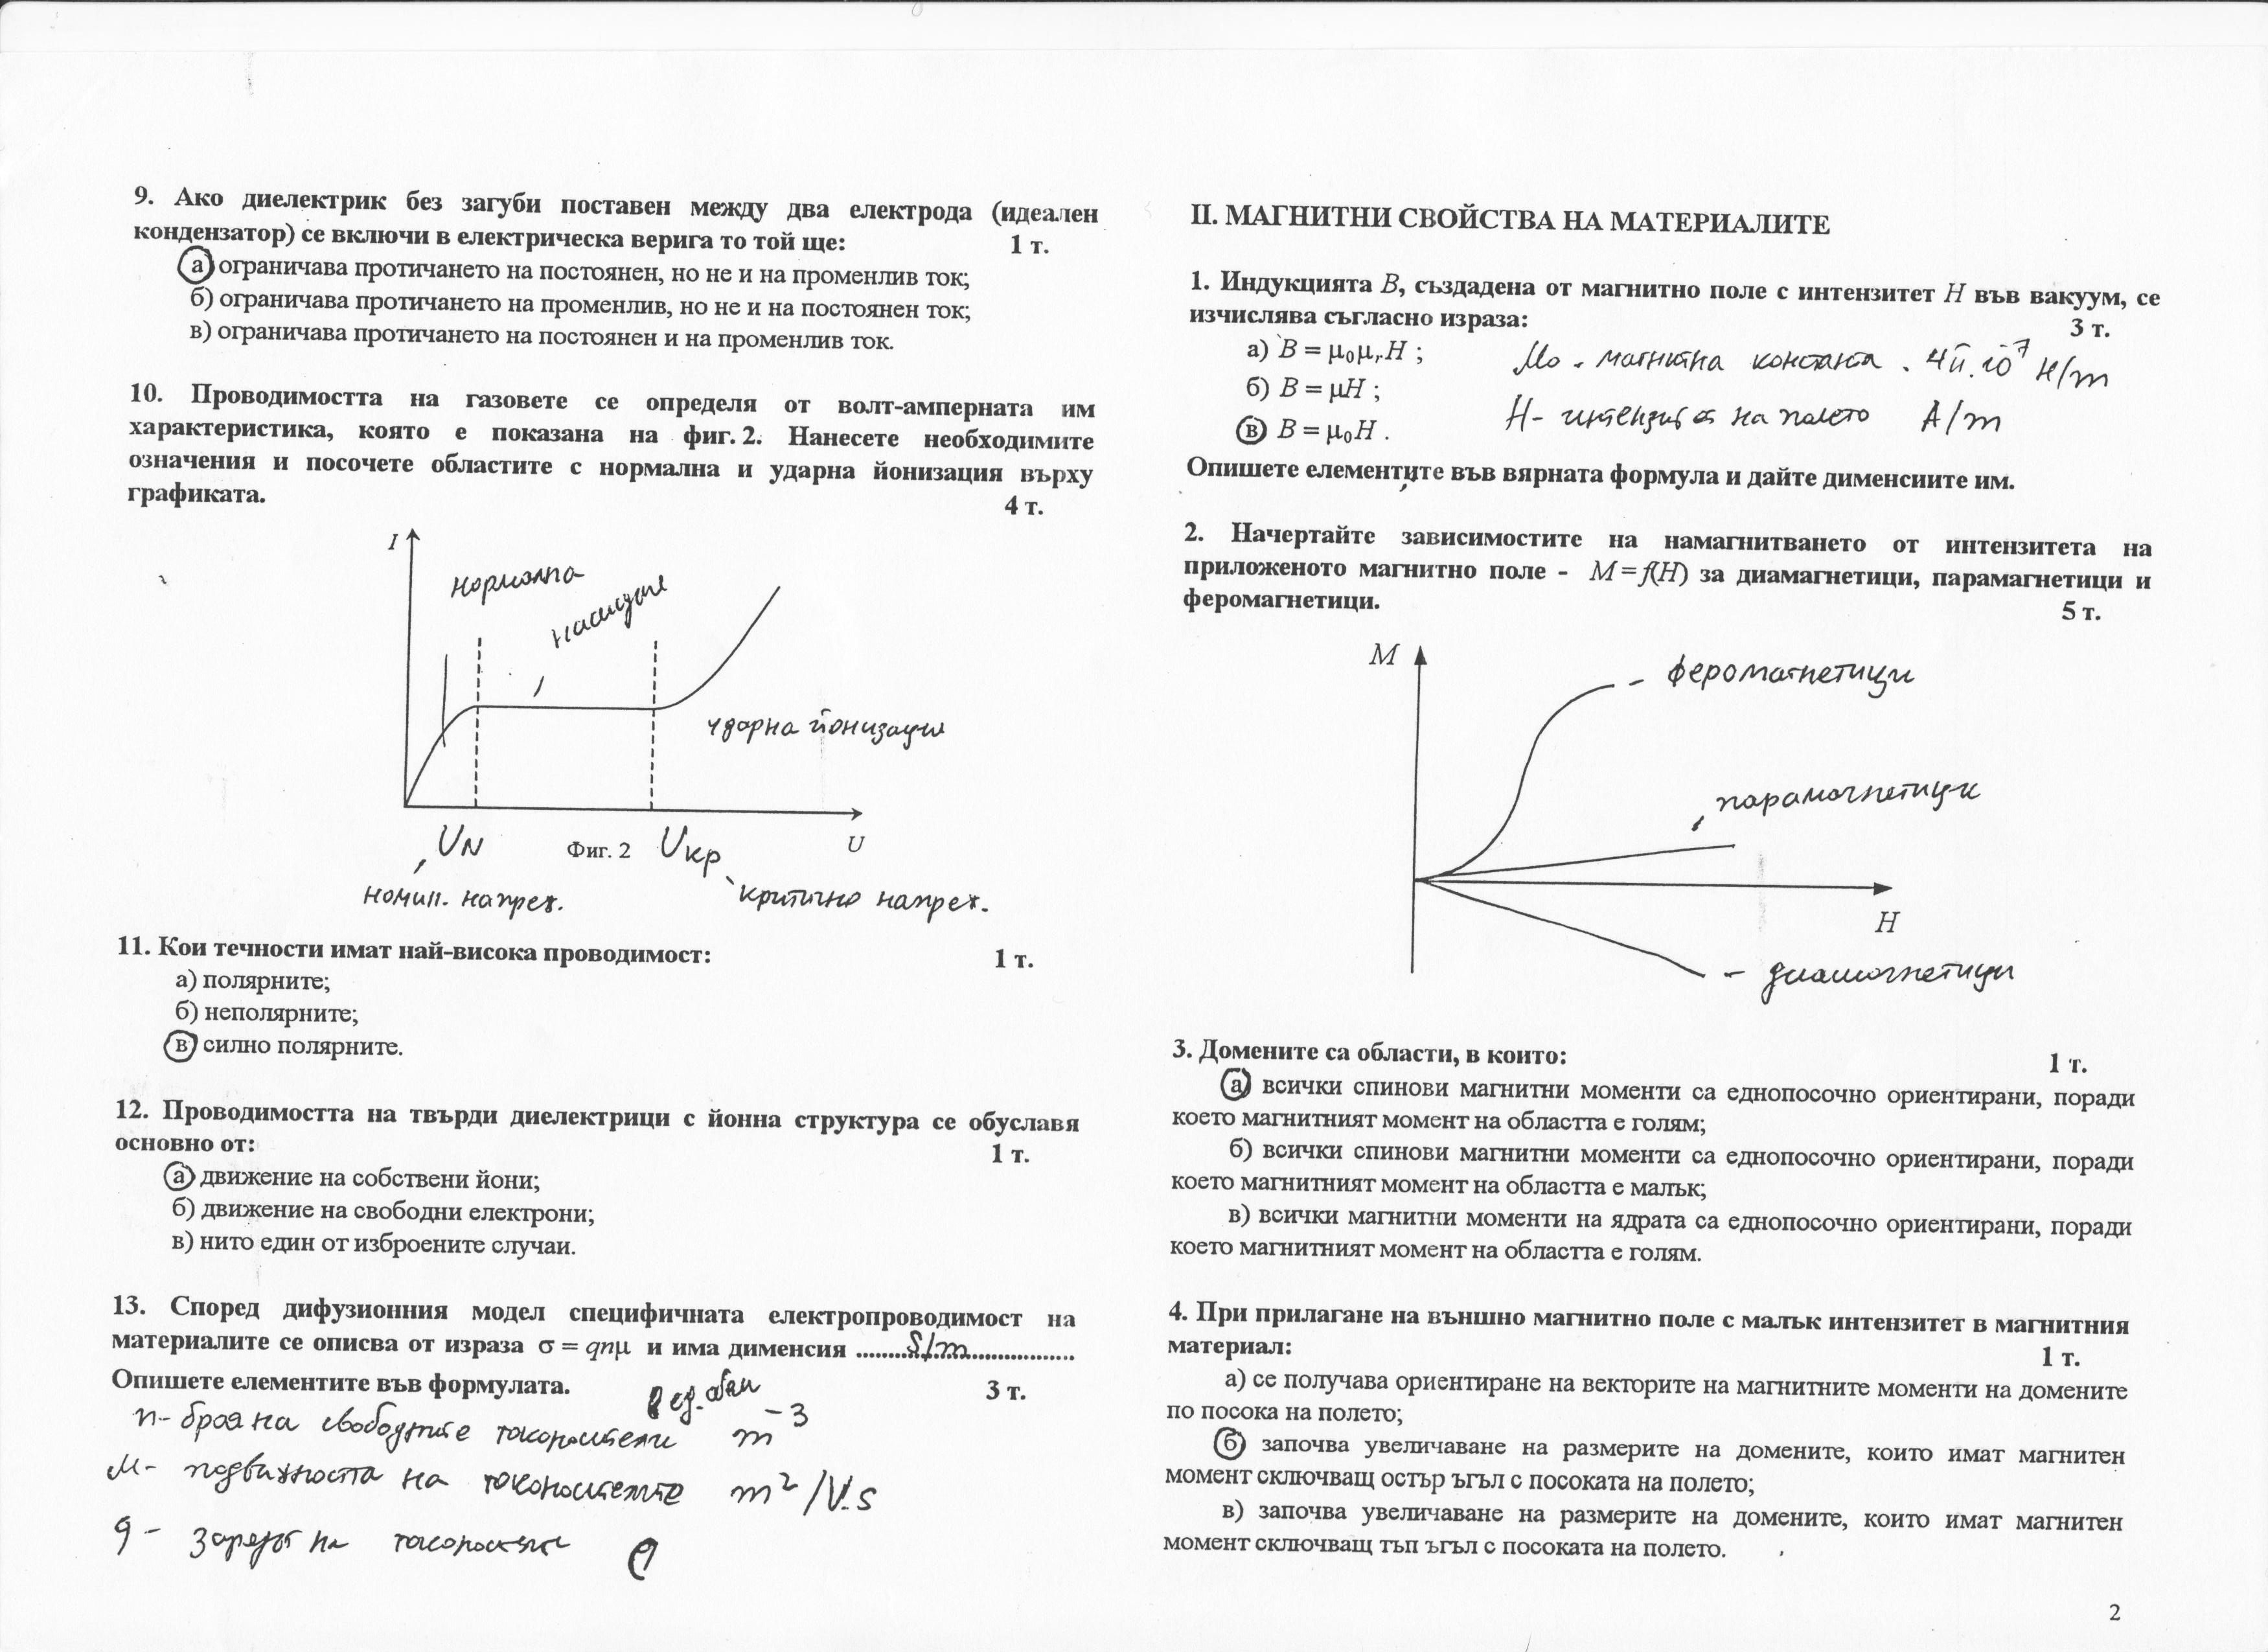 9. Ако диелектрик без загуби поставен между два електрода (идеален
кондензатор) се включи в електрическа верига то той ще: 1 т.
а) ограничава протичането на постоянен, но не и на променлив ток;
б) ограничава протичането на променлив, но не и на постоянен ток;
в) ограничава протичането на постоянен и на променлив ток.
10. Проводимостта на газовете се определя от волт-амперната им
характеристика, която е показана на фиг. 2. Нанесете необходимите
означения и посочете областите с нормална и ударна йонизация върху
графиката. 4 т.
I
нормална
насищане
ударна йонизация
U
UN
Фиг. 2
Uкр
номин. напреж.
критично напреж.
11. Кои течности имат най-висока проводимост: 1 т.
а) полярните;
б) неполярните;
в) силно полярните.
12. Проводимостта на твърди диелектрици с йонна структура се обуславя
основно от: 1 т.
а) движение на собствени йони;
б) движение на свободни електрони;
в) нито един от изброените случаи.
13. Според дифузионния модел специфичната електропроводимост на
материалите се описва от израза σ = qnμ и има дименсия ........S/m................
Опишете елементите във формулата. 3 т.
n- броя на свободните токоносители m⁻³
μ- подвижността на токоносителите m²/V.s
q - зарядът на токоносителите
II. МАГНИТНИ СВОЙСТВА НА МАТЕРИАЛИТЕ
1. Индукцията B, създадена от магнитно поле с интензитет H във вакуум, се
изчислява съгласно израза: 3 т.
а) B = μ₀μᵣH ;
б) B = μH ;
в) B = μ₀H .
μ₀ - магнитна константа . 4π.10⁻⁷ H/m
H- интензитет на полето A/m
Опишете елементите във вярната формула и дайте дименсиите им.
2. Начертайте зависимостите на намагнитването от интензитета на
приложеното магнитно поле - M = f(H) за диамагнетици, парамагнетици и
феромагнетици. 5 т.
M
- феромагнетици
парамагнетици
H
- диамагнетици
3. Домените са области, в които: 1 т.
а) всички спинови магнитни моменти са еднопосочно ориентирани, поради
което магнитният момент на областта е голям;
б) всички спинови магнитни моменти са еднопосочно ориентирани, поради
което магнитният момент на областта е малък;
в) всички магнитни моменти на ядрата са еднопосочно ориентирани, поради
което магнитният момент на областта е голям.
4. При прилагане на външно магнитно поле с малък интензитет в магнитния
материал: 1 т.
а) се получава ориентиране на векторите на магнитните моменти на домените
по посока на полето;
б) започва увеличаване на размерите на домените, които имат магнитен
момент сключващ остър ъгъл с посоката на полето;
в) започва увеличаване на размерите на домените, които имат магнитен
момент сключващ тъп ъгъл с посоката на полето.
2